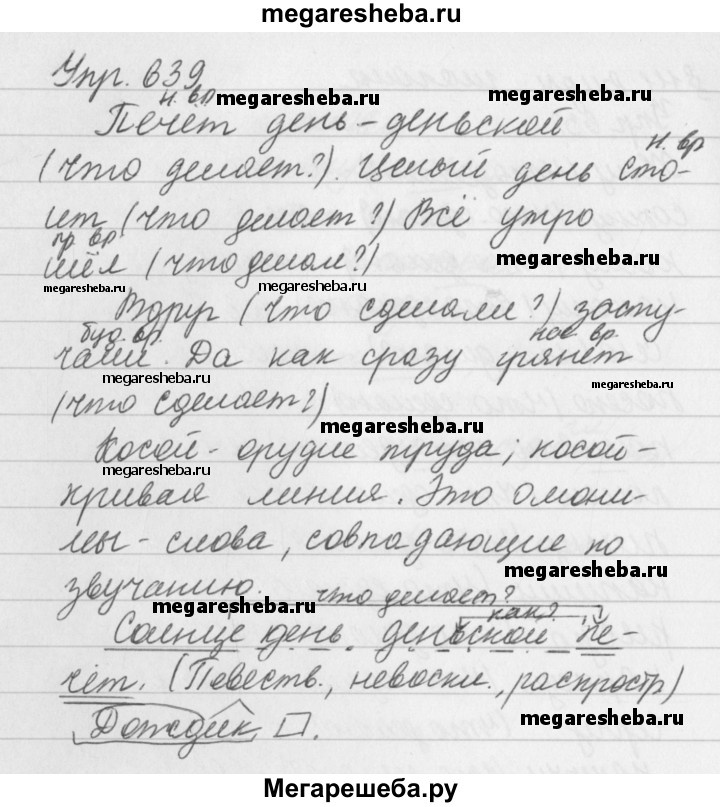 megaresheba.ru
Упр. 639
н. вр
megaresheba.ru
megaresheba.ru
Печёт день-деньской
н. вр
(что делает?). Целый день сто-
ит (что делает?) Всё утро
пр вр
шёл (что делал?)
megaresheba.ru
megaresheba.ru
Вдруг (что сделали?) засту-
буд. вр.
вр.
чали. Да как сразу грянет
megaresheba.ru
megaresheba.ru
(что сделает?)
megaresheba.ru
Косой - орудие труда, косой-
megaresheba.ru
кривая линия. Это омони-
мы - слова, совпадающие по
megaresheba.ru
звучанию.
что делает?
megaresheba.ru
как?
Солнце день деньской пе-
чёт. (Повеств., невоскл., распростр)
Дождик .
megaresheba.ru
Мегарешеба.ру